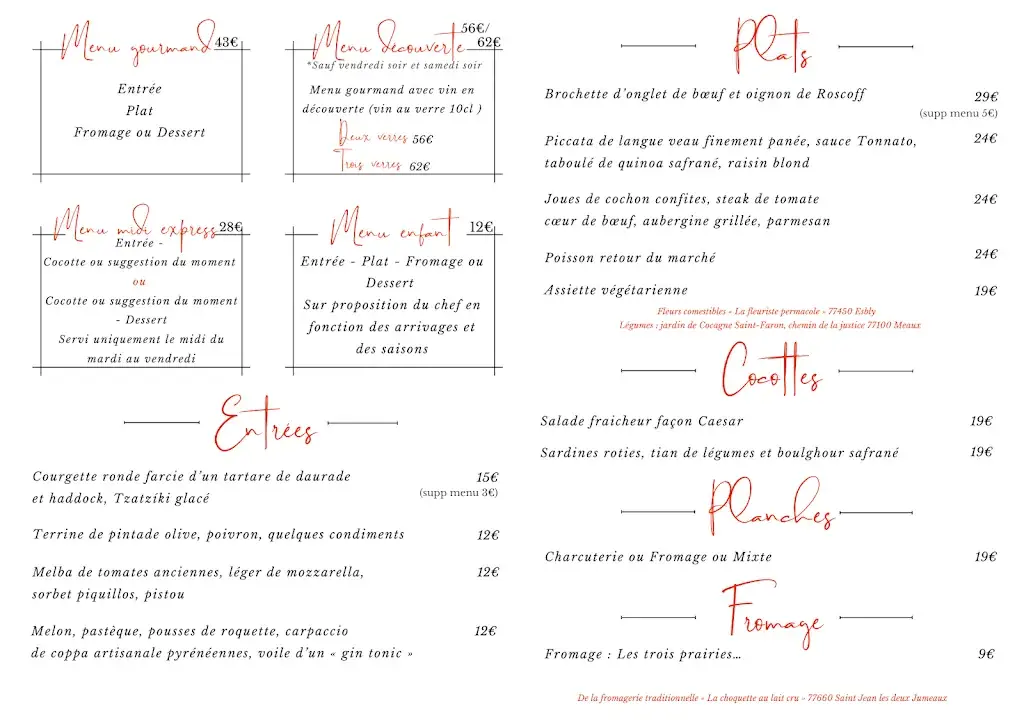 Menu gourmand 43€
Entrée
Plat
Fromage ou Dessert
Menu découverte 56€/
62€
*Sauf vendredi soir et samedi soir
Menu gourmand avec vin en
découverte (vin au verre 10cl )
Deux verres 56€
Trois verres 62€
Menu midi express 28€
Entrée -
Cocotte ou suggestion du moment
ou
Cocotte ou suggestion du moment
- Dessert
Servi uniquement le midi du
mardi au vendredi
Menu enfant 12€
Entrée - Plat - Fromage ou
Dessert
Sur proposition du chef en
fonction des arrivages et
des saisons
Entrées
Courgette ronde farcie d'un tartare de daurade 15€
et haddock, Tzatzíki glacé (supp menu 3€)
Terrine de pintade olive, poivron, quelques condiments 12€
Melba de tomates anciennes, léger de mozzarella, 12€
sorbet piquillos, pistou
Melon, pastèque, pousses de roquette, carpaccio 12€
de coppa artisanale pyrénéennes, voile d'un « gin tonic »
Plats
Brochette d'onglet de bœuf et oignon de Roscoff 29€
(supp menu 5€)
Piccata de langue veau finement panée, sauce Tonnato, 24€
taboulé de quinoa safrané, raisin blond
Joues de cochon confites, steak de tomate 24€
cœur de bœuf, aubergine grillée, parmesan
Poisson retour du marché 24€
Assiette végétarienne 19€
Fleurs comestibles - La fleuriste permacole - 77450 Esbly
Légumes : jardin de Cocagne Saint-Faron, chemin de la justice 77100 Meaux
Cocottes
Salade fraicheur façon Caesar 19€
Sardines roties, tian de légumes et boulghour safrané 19€
Planches
Charcuterie ou Fromage ou Mixte 19€
Fromage
Fromage : Les trois prairies... 9€
De la fromagerie traditionnelle - La choquette au lait cru - 77660 Saint Jean les deux Jumeaux